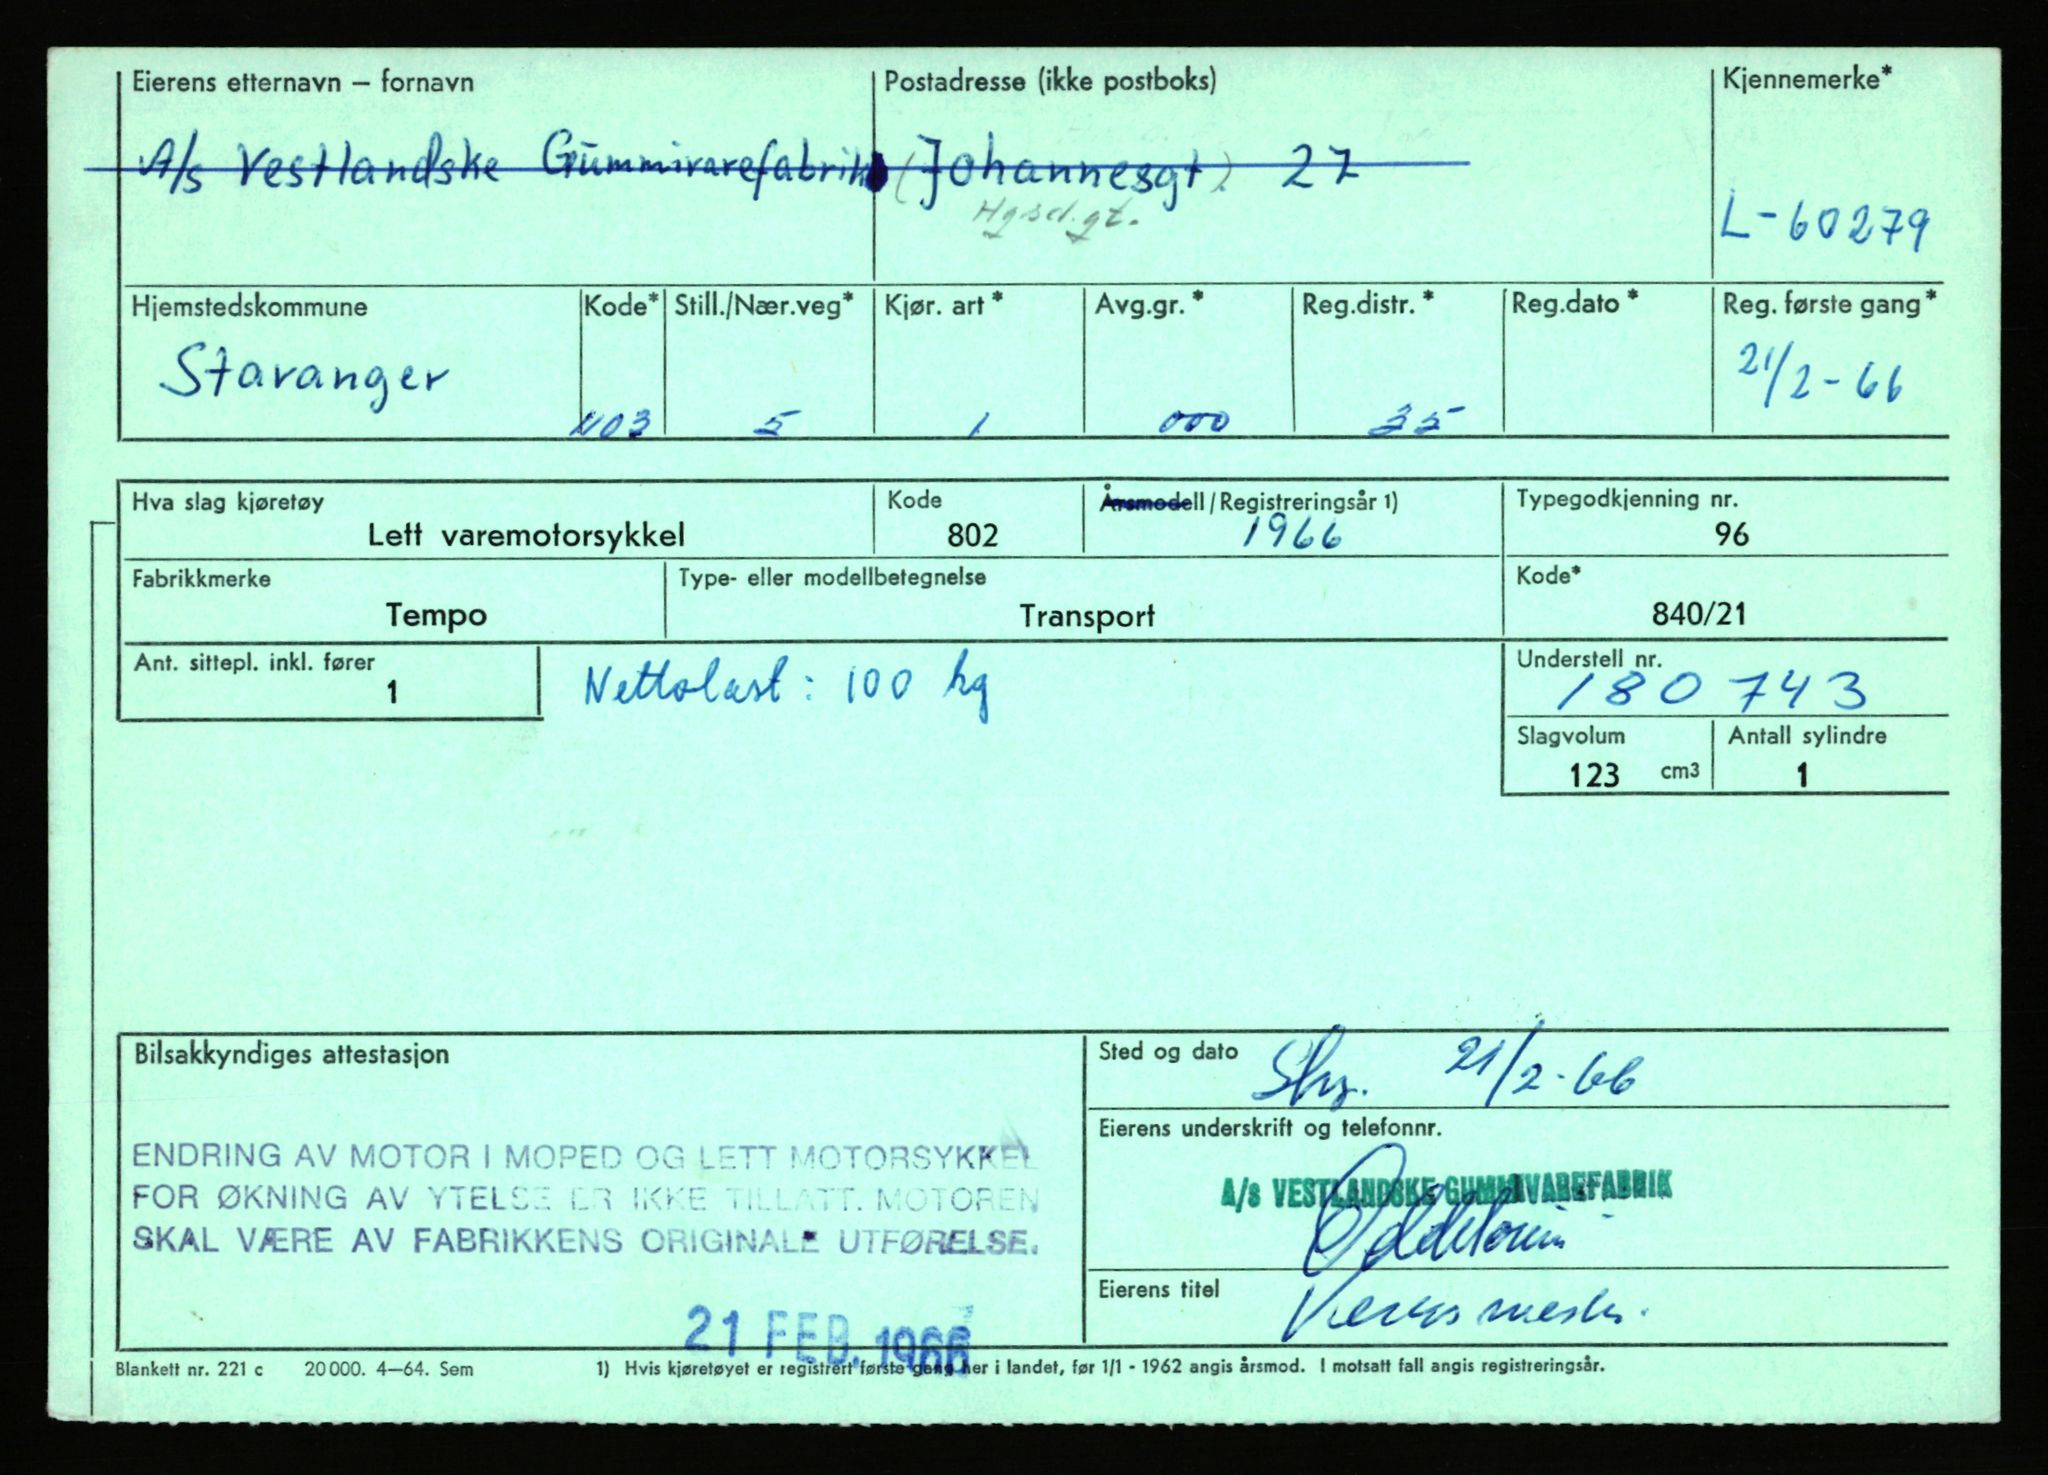 Eierens etternavn – fornavn
Postadresse (ikke postboks)
Kjennemerke*
A/s Vestlandske Gummivarefabrik (Johannesgt.) 27
Hgsd.gt.
L-60279
Hjemstedskommune
Kode*
Still./Nær.veg*
Kjør. art *
Avg.gr. *
Reg.distr. *
Reg.dato *
Reg. første gang*
Stavanger
1103
5
1
000
35
21/2-66
Hva slag kjøretøy
Kode
Årsmodell/Registreringsår 1)
Typegodkjenning nr.
Lett varemotorsykkel
802
1966
96
Fabrikkmerke
Type- eller modellbetegnelse
Kode*
Tempo
Transport
840/21
Ant. sittepl. inkl. fører
1
Nettolast: 100 kg
Understell nr.
180743
Slagvolum
Antall sylindre
123 cm3
1
Bilsakkyndiges attestasjon
ENDRING AV MOTOR I MOPED OG LETT MOTORSYKKEL
FOR ØKNING AV YTELSE ER IKKE TILLATT. MOTOREN
SKAL VÆRE AV FABRIKKENS ORIGINALE UTFØRELSE.
21 FEB. 1966
Sted og dato
Svg. 21/2-66
Eierens underskrift og telefonnr.
A/s VESTLANDSKE GUMMIVAREFABRIK
Eierens titel
Verksmester.
Blankett nr. 221 c 20 000. 4–64. Sem
1) Hvis kjøretøyet er registrert første gang her i landet, før 1/1 - 1962 angis årsmod. I motsatt fall angis registreringsår.